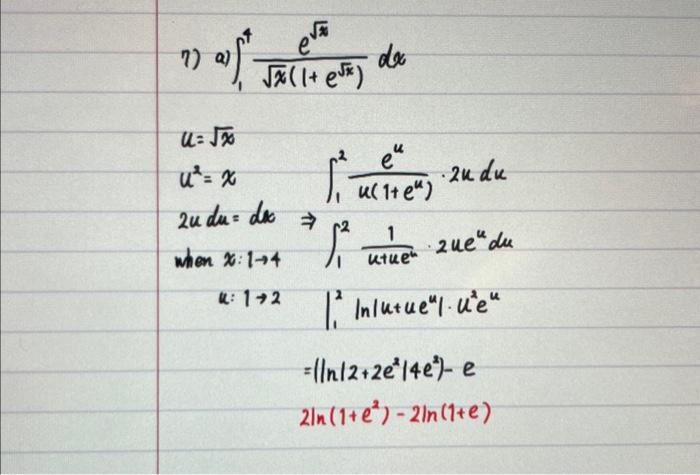 7) a) ∫₁⁴ e^√x / √x(1+e^√x) dx
u=√x
u²=x
∫₁² e^u / u(1+e^u) · 2u du
2u du = dx ⇒
∫₁² 1 / u+ue^u · 2ue^u du
when x: 1→4
u: 1→2
|₁² ln|u+ue^u| · u²e^u
=(ln|2+2e²|4e²)- e
2ln(1+e²) - 2ln(1+e)